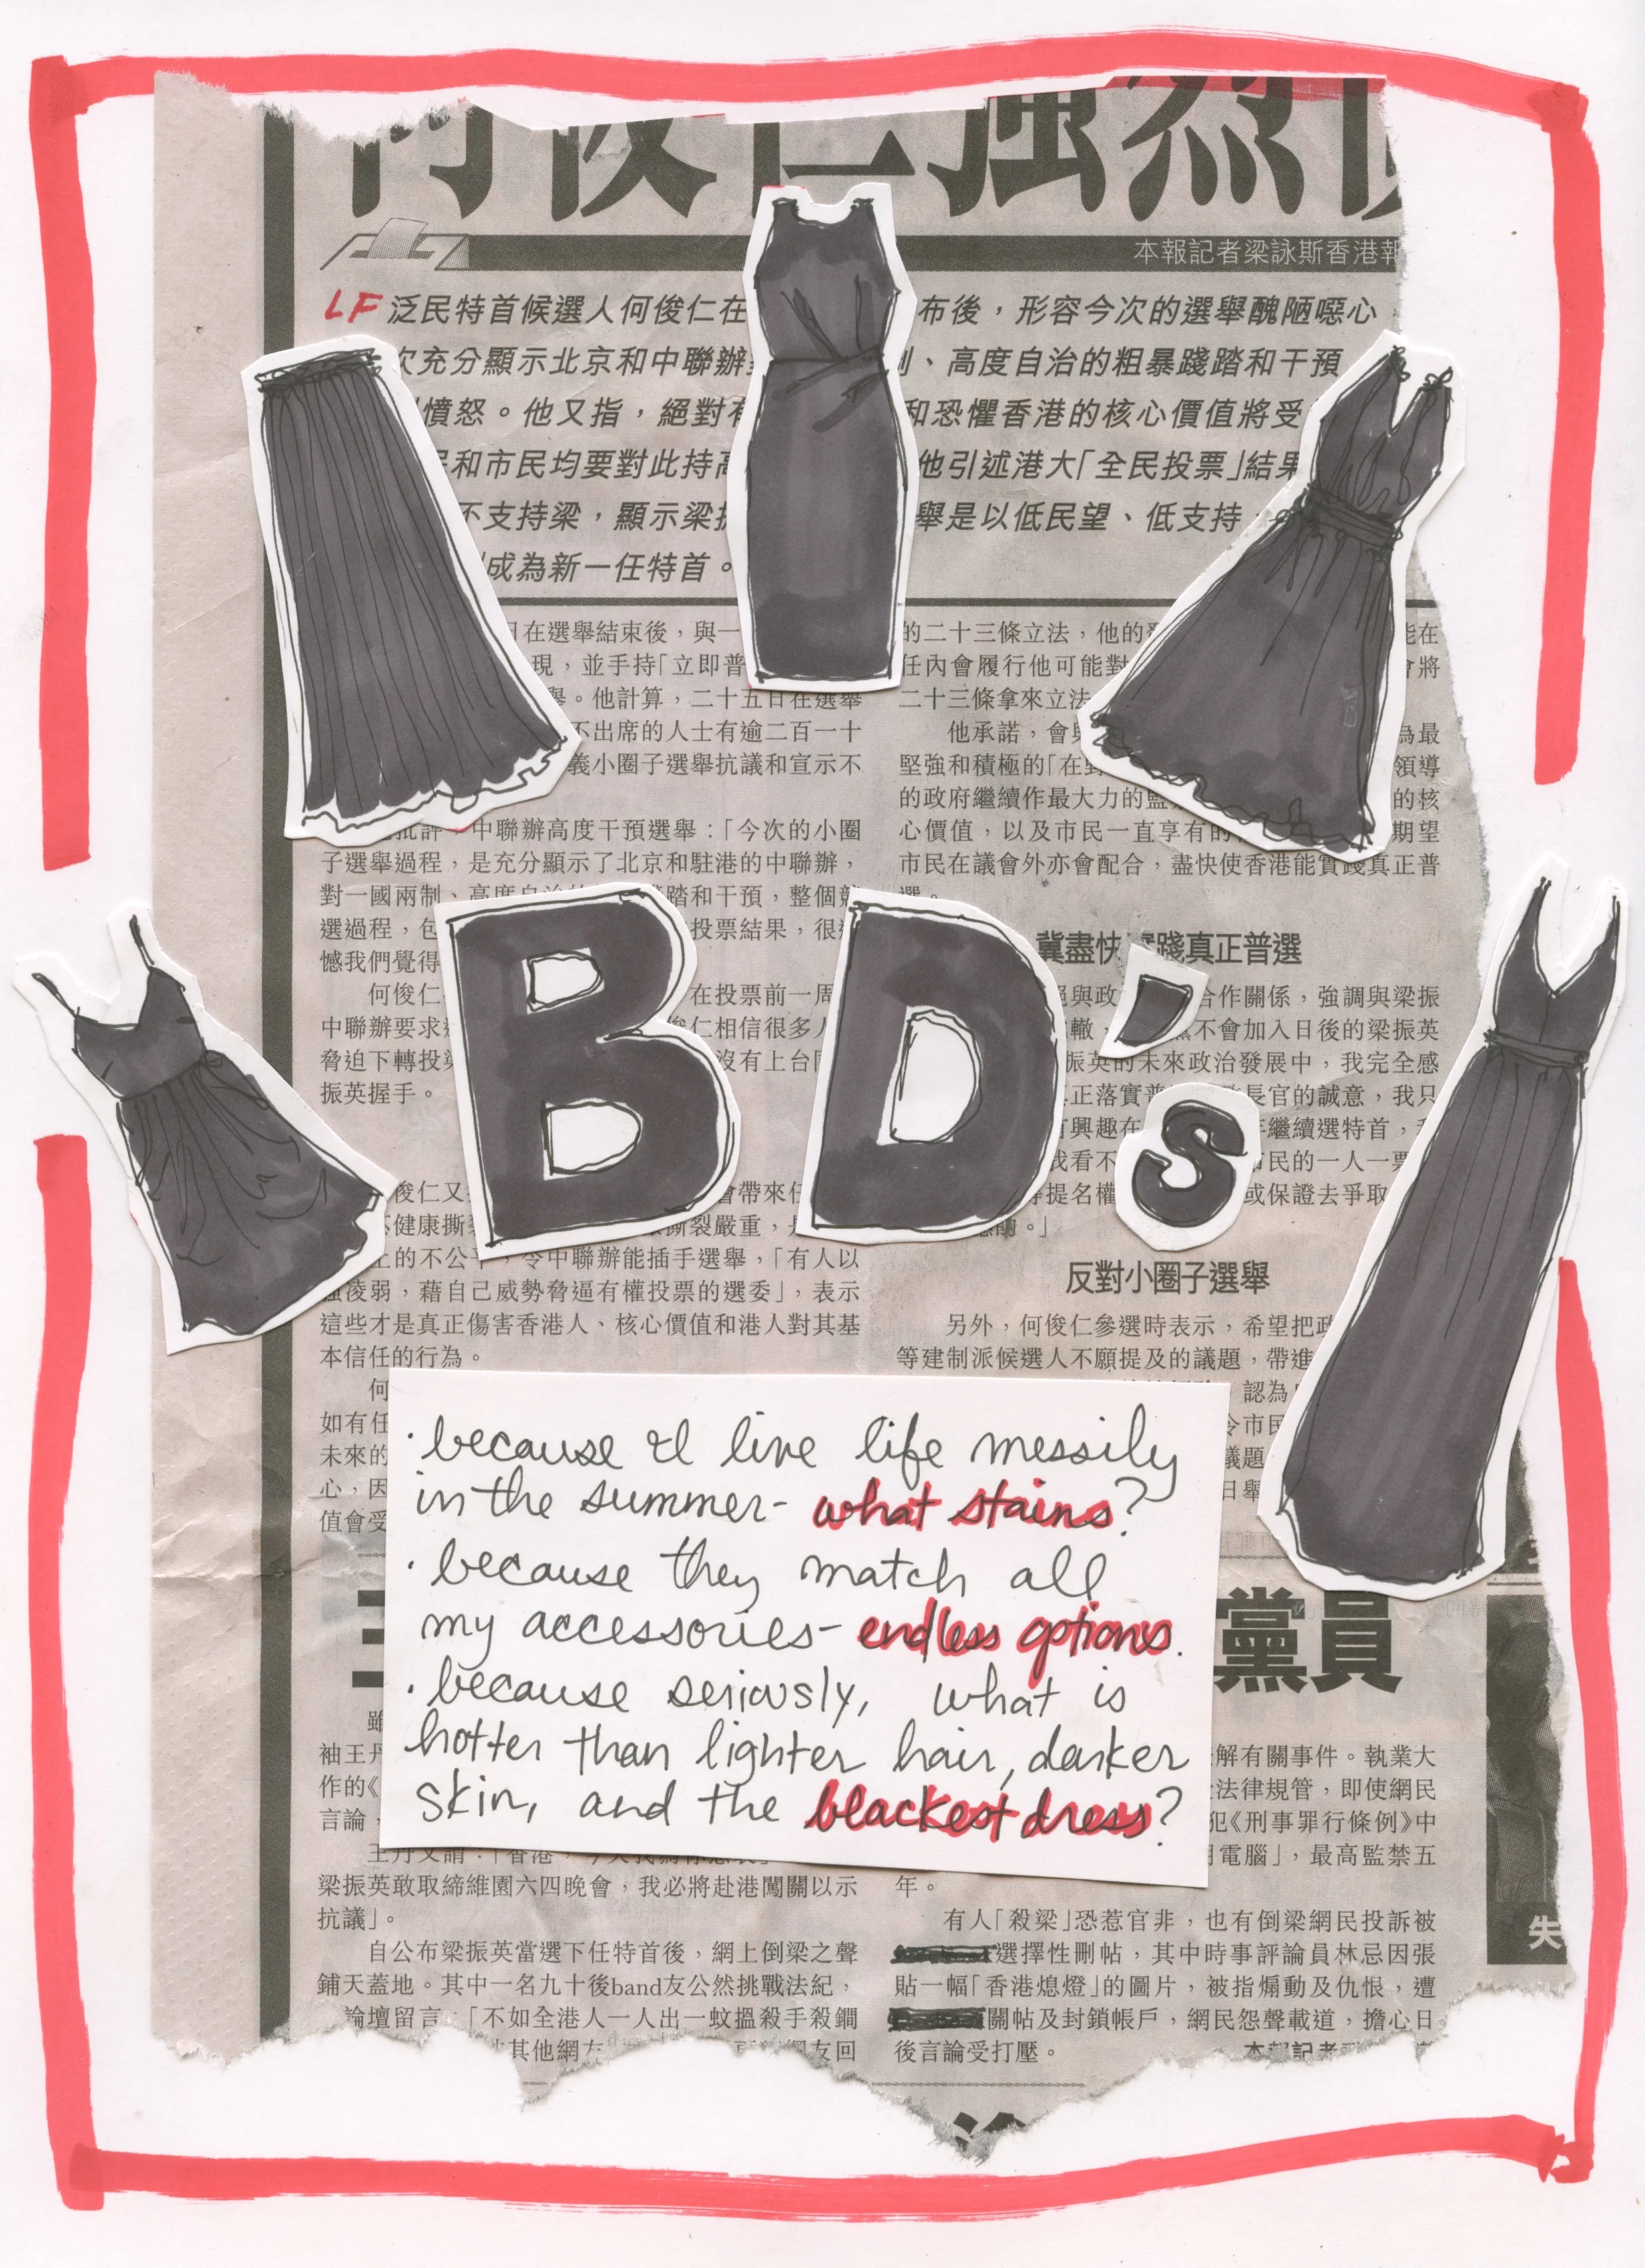 何俊仁強烈
本報記者梁詠斯香港報
LF 泛民特首候選人何俊仁在
布後，形容今次的選舉醜陋噁心
次充分顯示北京和中聯辦
、高度自治的粗暴踐踏和干預
憤怒。他又指，絕對有
和恐懼香港的核心價值將受
和市民均要對此持高
他引述港大「全民投票」結果
不支持梁，顯示梁振
舉是以低民望、低支持
成為新一任特首。
在選舉結束後，與一
現，並手持「立即普
舉。他計算，二十五日在選舉
不出席的人士有逾二百一十
義小圈子選舉抗議和宣示不
批評，中聯辦高度干預選舉：「今次的小圈
子選舉過程，是充分顯示了北京和駐港的中聯辦，
對一國兩制、高度自治的
踏和干預，整個競
選過程，包
投票結果，很
憾我們覺得
何俊仁
在投票前一周
中聯辦要求
俊仁相信很多人
脅迫下轉投
沒有上台
振英握手。
BD's
俊仁又
會帶來
健康撕
撕裂嚴重，
上的不公平，令中聯辦能插手選舉，「有人以
強凌弱，藉自己威勢脅逼有權投票的選委」，表示
這些才是真正傷害香港人、核心價值和港人對其基
本信任的行為。
何
如有任
未來的
心，因
值會受
的二十三條立法，他的
能在
任內會履行他可能對
會將
二十三條拿來立法
他承諾，會與
為最
堅強和積極的「在野
領導
的政府繼續作最大力的監
的核
心價值，以及市民一直享有的
期望
市民在議會外亦會配合，盡快使香港能實踐真正普
選。
冀盡快實踐真正普選
絕與政
合作關係，強調與梁振
轍，
不會加入日後的梁振英
振英的未來政治發展中，我完全感
正落實普
長官的誠意，我只
有興趣在
年繼續選特首，
我看不
市民的一人一票
等提名權
或保證去爭取
前。」
反對小圈子選舉
另外，何俊仁參選時表示，希望把政
等建制派候選人不願提及的議題，帶進
認為
令市民
議題
日舉
· because I live life messily
in the summer- what stains?
· because they match all
my accessories- endless options.
· because seriously, what is
hotter than lighter hair, darker
skin, and the blackest dress?
黨員
雖
袖王丹
作的《
言論，
王丹又謂：「香港，今天我為你悲哀
梁振英敢取締維園六四晚會，我必將赴港闖關以示
抗議」。
自公布梁振英當選下任特首後，網上倒梁之聲
鋪天蓋地。其中一名九十後band友公然挑戰法紀，
論壇留言：「不如全港人一人出一蚊搵殺手殺鐧
其他網友
友回
解有關事件。執業大
法律規管，即使網民
犯《刑事罪行條例》中
用電腦」，最高監禁五
年。
有人「殺梁」恐惹官非，也有倒梁網民投訴被
選擇性刪帖，其中時事評論員林忌因張
貼一幅「香港熄燈」的圖片，被指煽動及仇恨，遭
關帖及封鎖帳戶，網民怨聲載道，擔心日
後言論受打壓。
本報記者
失